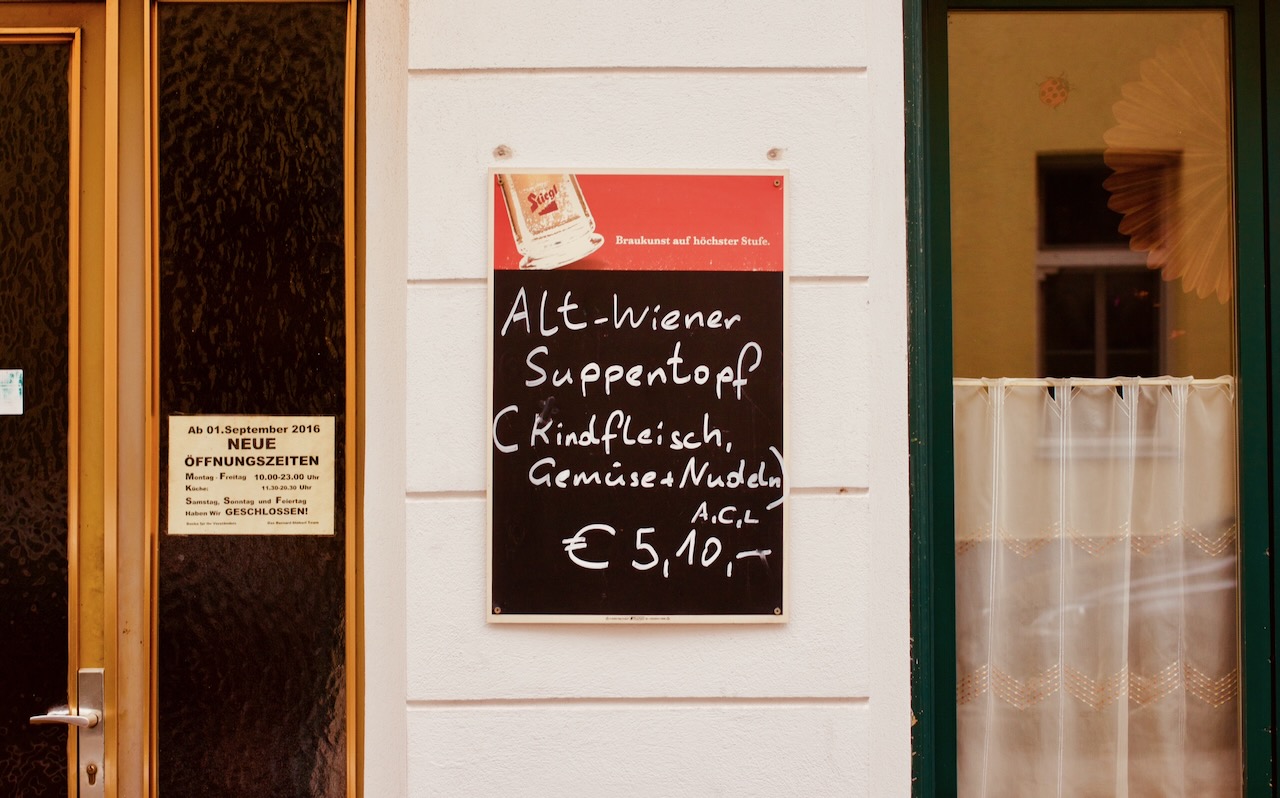 Ab 01.September 2016
NEUE
ÖFFNUNGSZEITEN
Montag - Freitag 10.00-23.00 Uhr
Küche: 11.30-20.30 Uhr
Samstag, Sonntag und Feiertag
Haben Wir GESCHLOSSEN!
Stiegl
Braukunst auf höchster Stufe.
Alt-Wiener
Suppentopf
(Rindfleisch,
Gemüse+Nudeln)
A,C,L
€ 5,10,-